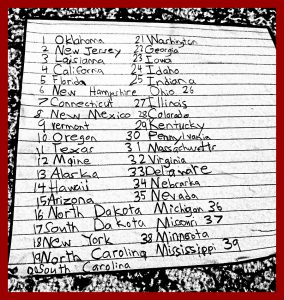 1 Oklahoma 21 Washington
2 New Jersey 22 Georgia
3 Louisianna 23 Iowa
4 California 24 Idaho
5 Florida 25 Indiana
6 New Hampshire Ohio 26
7 Connecticut 27 Illinois
8 New Mexico 28 Colorado
9 Vermont 29 Kentucky
10 Oregon 30 Pennsylvania
11 Texas 31
12 Maine 32 Virginia
13 Alaska 33 Delaware
14 Hawaii 34 Nebraska
15 Arizona 35 Nevada
16 North Dakota Michigan 36
17 South Dakota Missouri 37
18 New York 38 Minnesota
19 North Carolina Mississippi 39
20 South Carolina